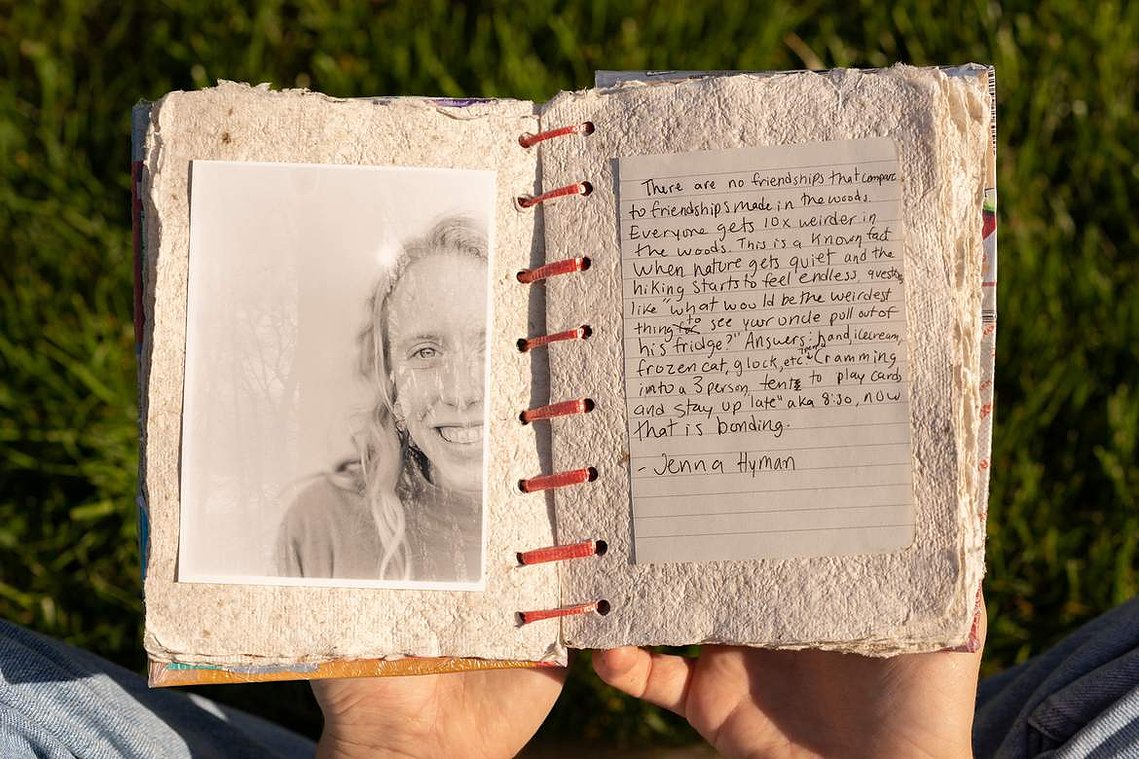 There are no friendships that compare
to friendships made in the woods.
Everyone gets 10x weirder in
the woods. This is a known fact
When nature gets quiet and the
hiking starts to feel endless questi
like "what would be the weirdest
thing to see your uncle pull out of
his fridge?" Answers: hand, icecream,
frozen cat, glock, etc. Cramming
into a 3 person tent to play cards
and stay up late" aka 8:30, now
that is bonding.
- Jenna Hyman